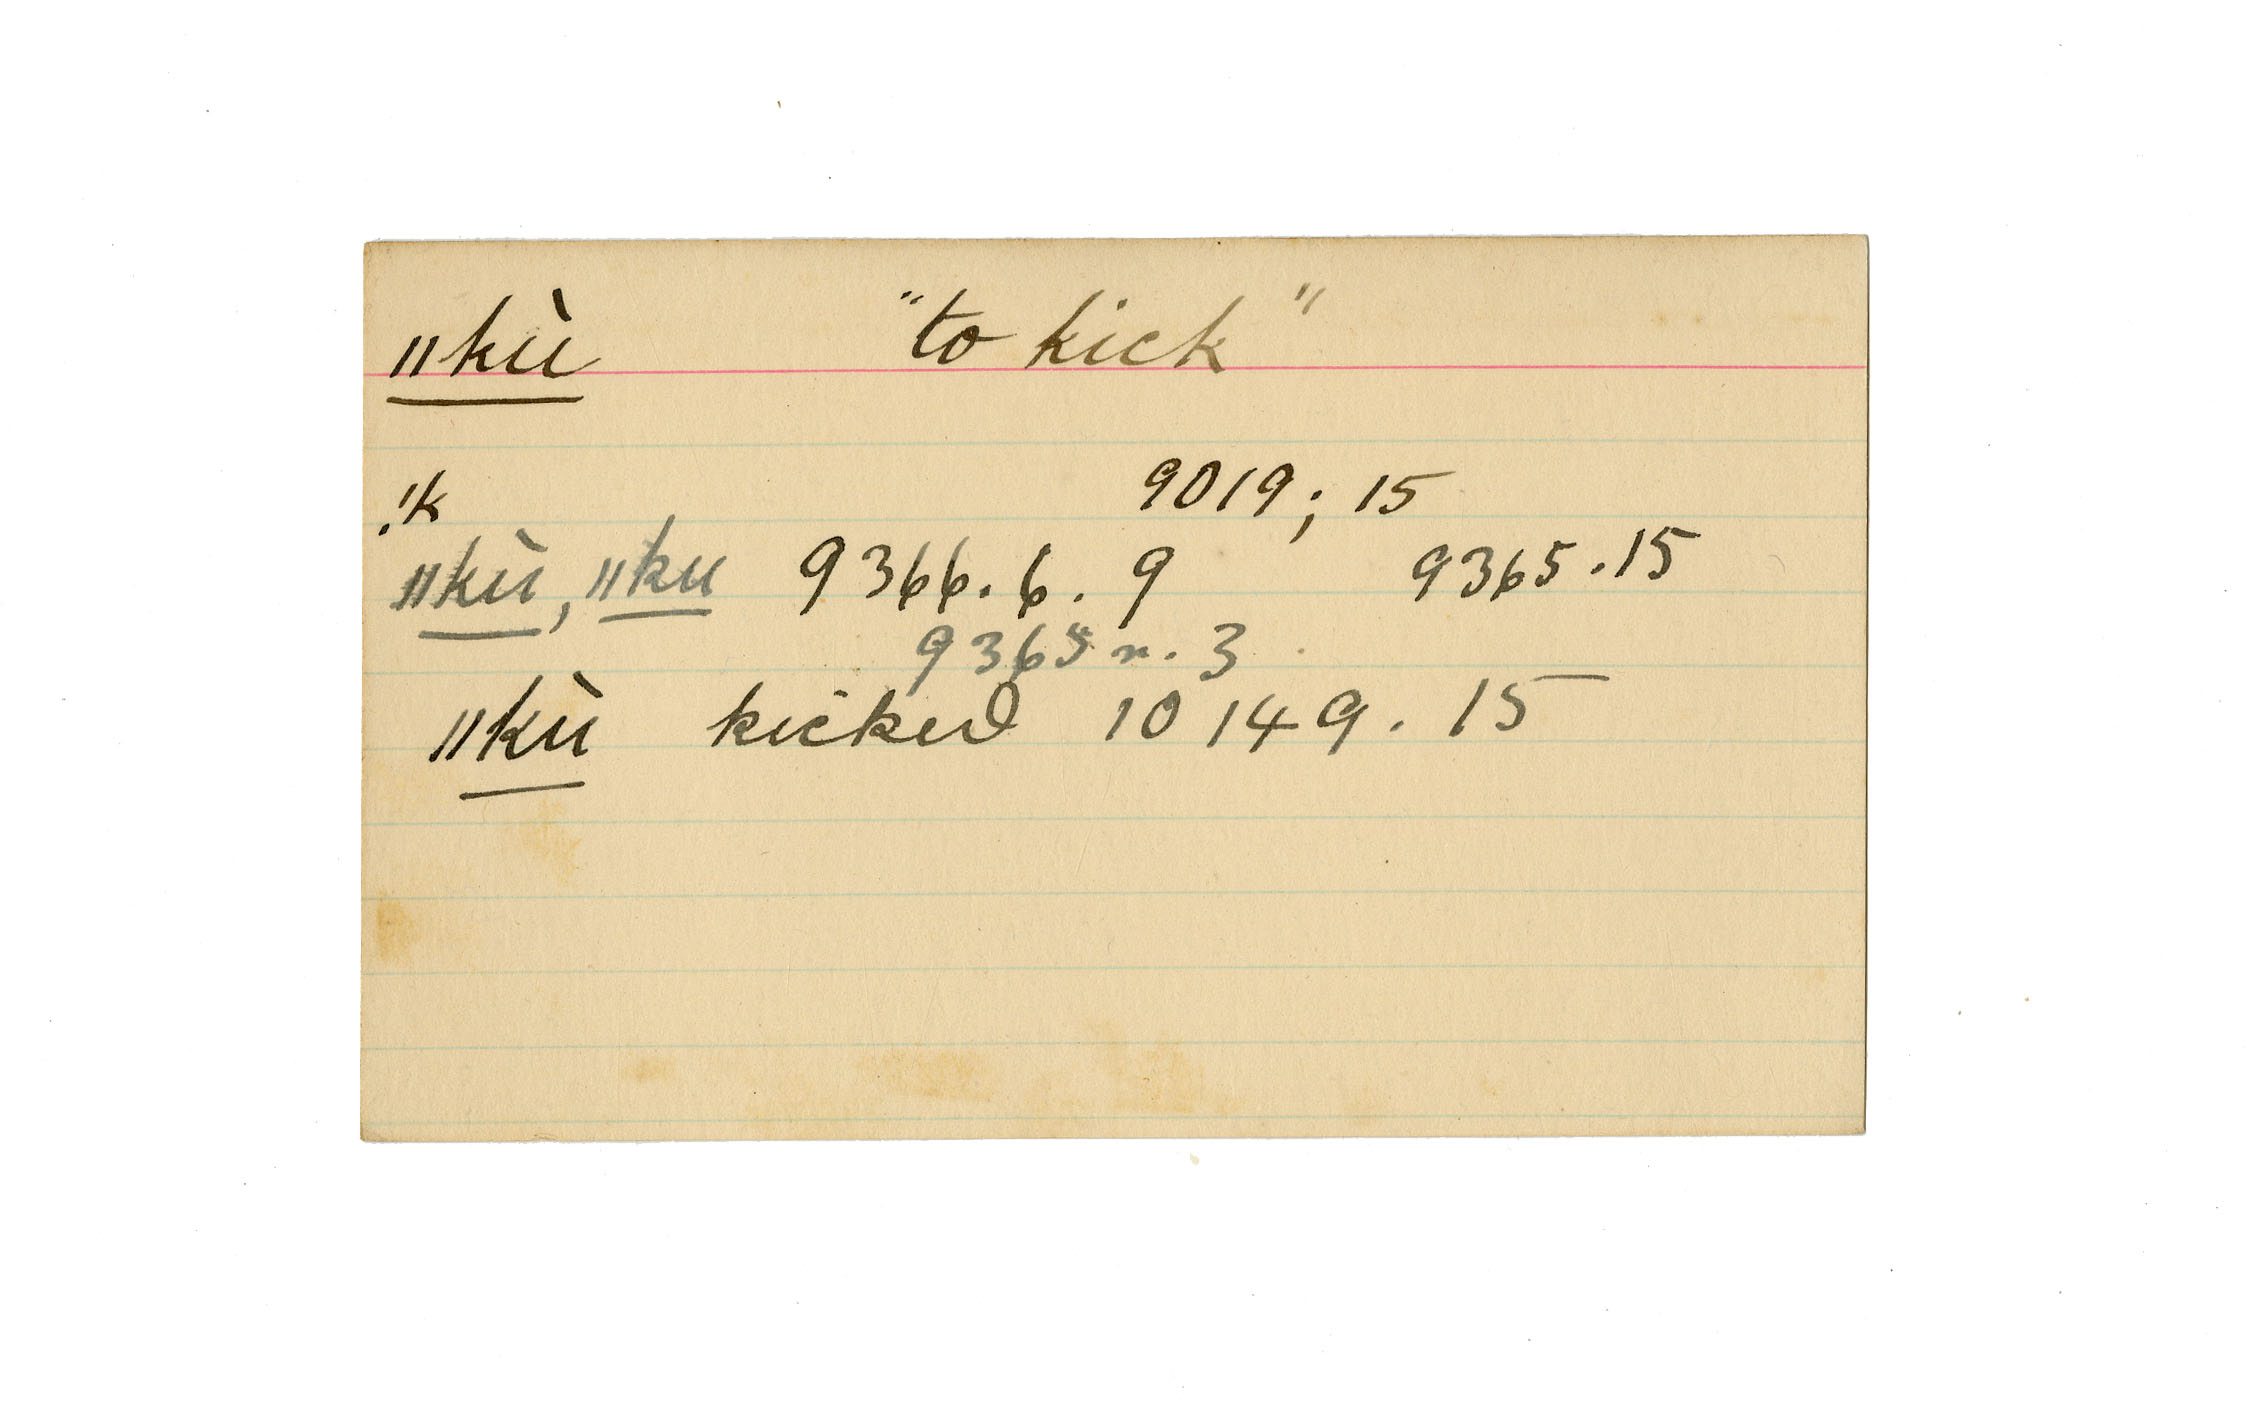 ǁkù "to kick"
!k 9019; 15
ǁkù, ǁku 9366.6.9 9365.15
9365 n. 3
ǁkù kicked 10149.15